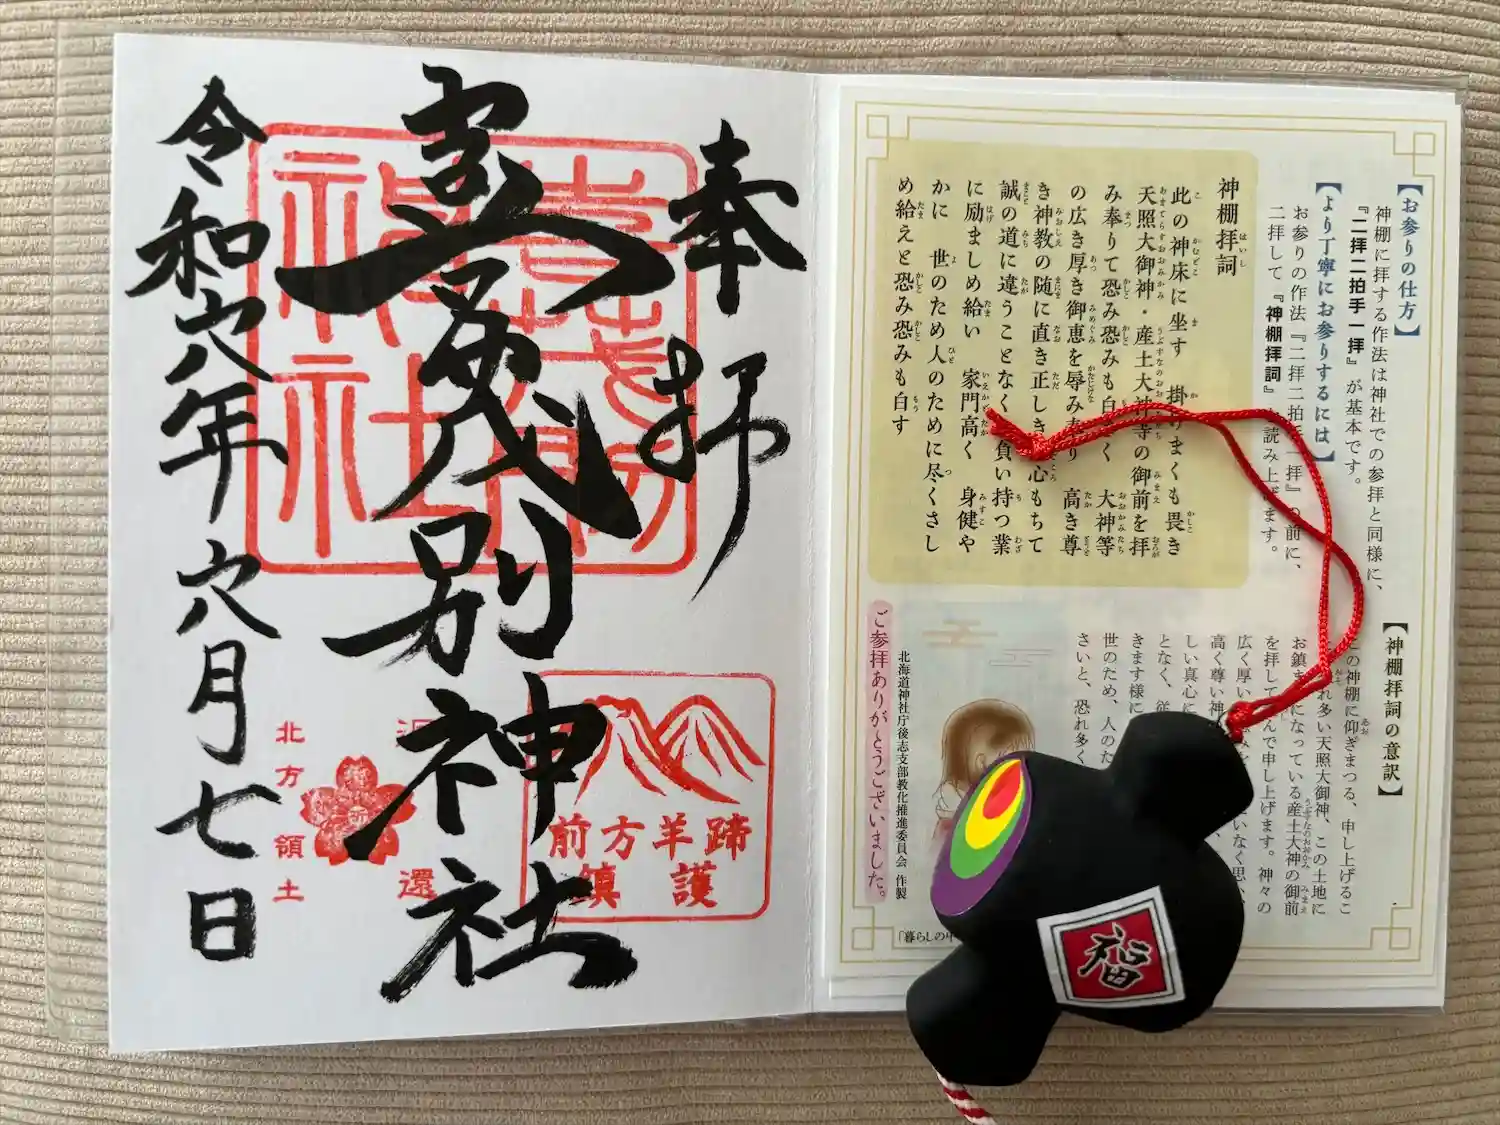 奉拝
喜茂別神社
令和六年六月七日
前方羊蹄
鎮護
北方
領土
還
【お参りの仕方】
神棚に拝する作法は神社での参拝と同様に、
『二拝二拍手一拝』が基本です。
【より丁寧にお参りするには】
お参りの作法『二拝二拍手一拝』の前に、
二拝して『神棚拝詞』読み上げます。
神棚拝詞
此の神床に坐す 掛けまくも畏き
天照大御神・産土大神等の御前を拝
み奉りて恐み恐みも白さく 大神等
の広き厚き御恵を辱み奉り 高き尊
き神教の随に直き正しき心もちて
誠の道に違うことなく負い持つ業
に励ましめ給い 家門高く 身健や
かに 世のため人のために尽くさし
め給えと恐み恐みも白す
【神棚拝詞の意訳】
この神棚に仰ぎまつる、申し上げるこ
れ多い天照大御神、この土地に
お鎮まになっている産土大神の御前
を拝してんで申し上げます。神々の
広く厚い
高く尊い神
しい真心に
となく、従
きます様に
世のため、人のた
さいと、恐れ多く
北海道神社庁後志支部教化推進委員会 作製
ご参拝ありがとうございました。
「暮らしの中
福